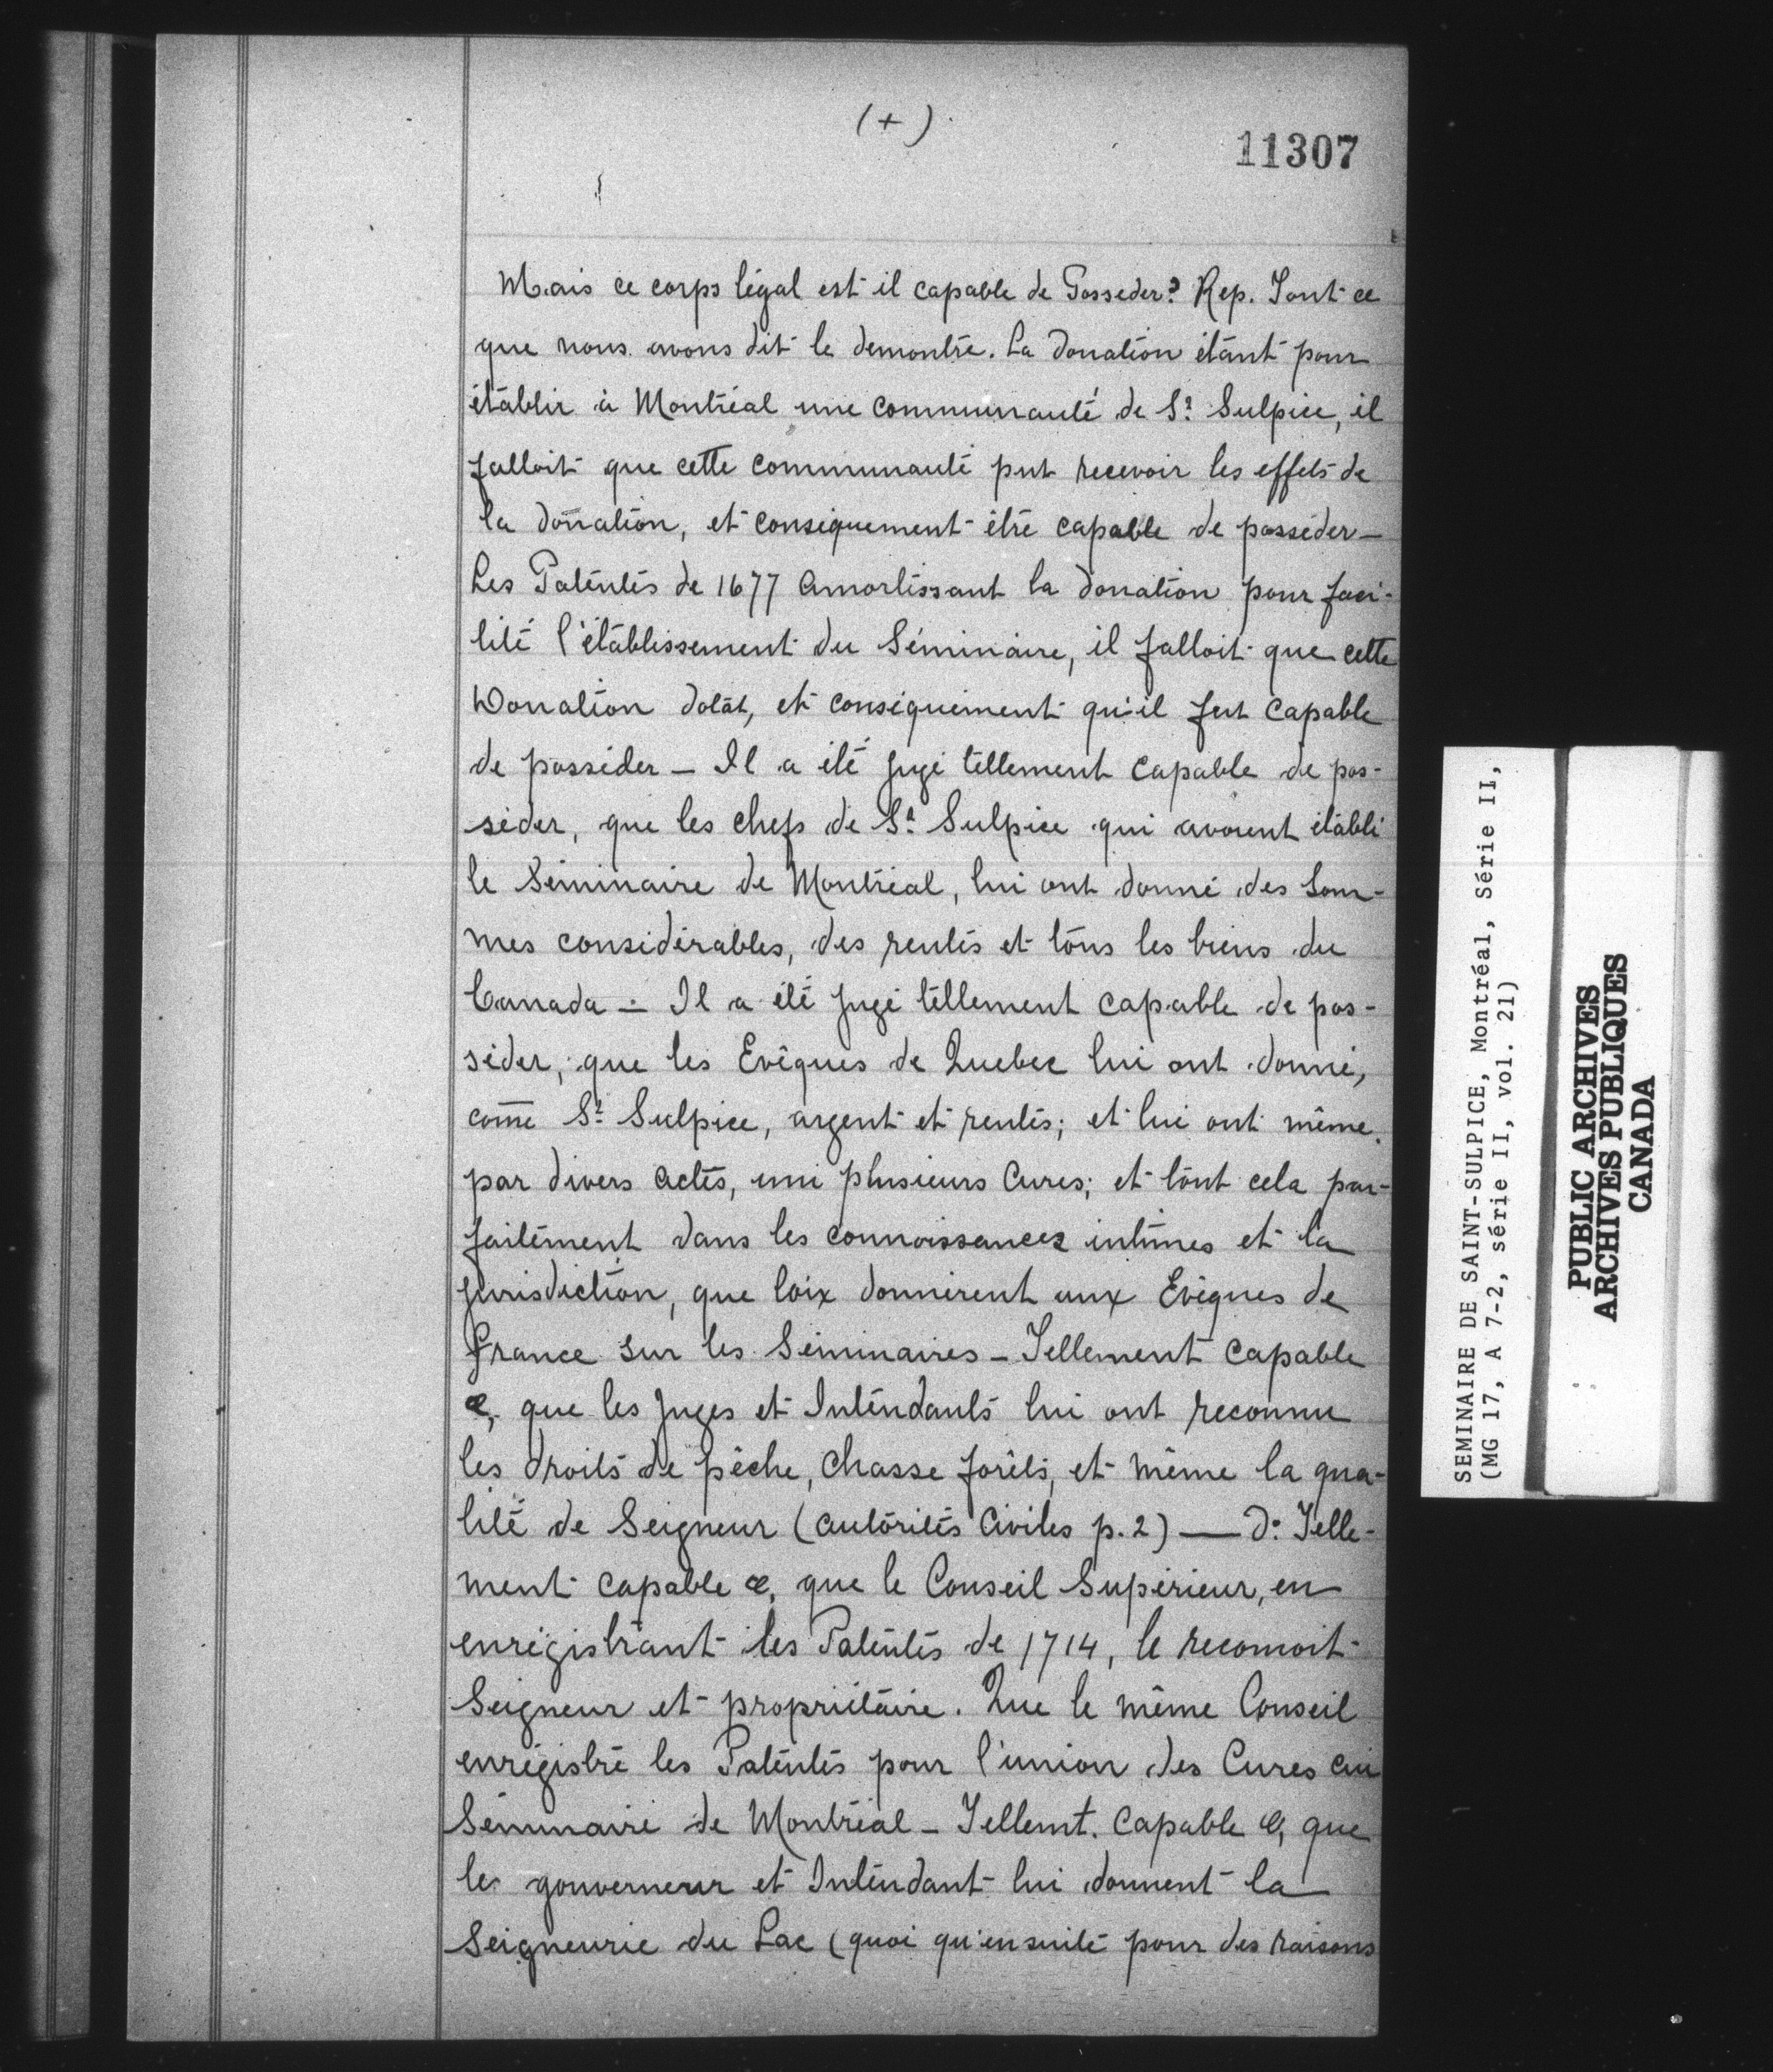 (+)
11307
Mais ce corps légal est il capable de Posseder? Rep. Tout ce
que nous avons dit le demontre. La Donation étant pour
établir à Montréal une communauté de St Sulpice, il
falloit que cette communauté put recevoir les effets de
la donation, et conséquement être capable de posséder —
Les Patentes de 1677 amortissant la donation pour faci-
lité l'établissement du Séminaire, il falloit que cette
Donation dotât, et conséquement qu'il fut capable
de posséder — Il a été jugé tellement capable de pos-
séder, que les chefs de St Sulpice qui avoient établi
le Séminaire de Montréal, lui ont donné des Som-
mes considérables, des rentes et tous les biens du
Canada — Il a été jugé tellement capable de pos-
séder, que les Evêques de Quebec lui ont donné,
comē St Sulpice, argent et rentes; et lui ont même
par divers actes, uni plusieurs Cures; et tout cela par-
faitement dans les connoissances intimes et la
jurisdiction, que loix donnèrent aux Evêques de
France sur les Séminaires — Tellement capable
&, que les Juges et Intendants lui ont reconnu
les droits de pêche, chasse forêts, et même la qua-
lité de Seigneur (autorités Civiles p. 2) — do Telle-
ment capable &, que le Conseil Supérieur, en
enrégistrant les Patentes de 1714, le reconnoit
Seigneur et propriétaire. Que le même Conseil
enrégistre les Patentes pour l'union des Cures au
Séminaire de Montréal — Tellemt. Capable &, que
le gouverneur et Intendant lui donnent la
Seigneurie du Lac (quoi qu'ensuite pour des raisons
SEMINAIRE DE SAINT-SULPICE, Montréal, Série II,
(MG 17, A 7-2, série II, vol. 21)
PUBLIC ARCHIVES
ARCHIVES PUBLIQUES
CANADA